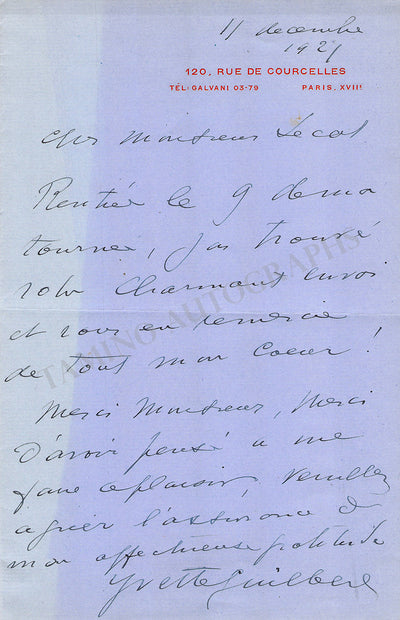 11 decembre
1921
120, RUE DE COURCELLES
TÉL: GALVANI 03-79 PARIS, XVIIᵉ
cher Monsieur Lecat
Rentrée le 9 de ma
tournée, j'ai trouvé
votre charmant envoi
et vous en remercie
de tout mon Coeur!
Merci Monsieur, Merci
D'avoir pensé a me
faire ce plaisir, veuillez
agréer l'assurance de
mon affectueuse gratitude
Yvette Guilbert
TAMINO AUTOGRAPHS